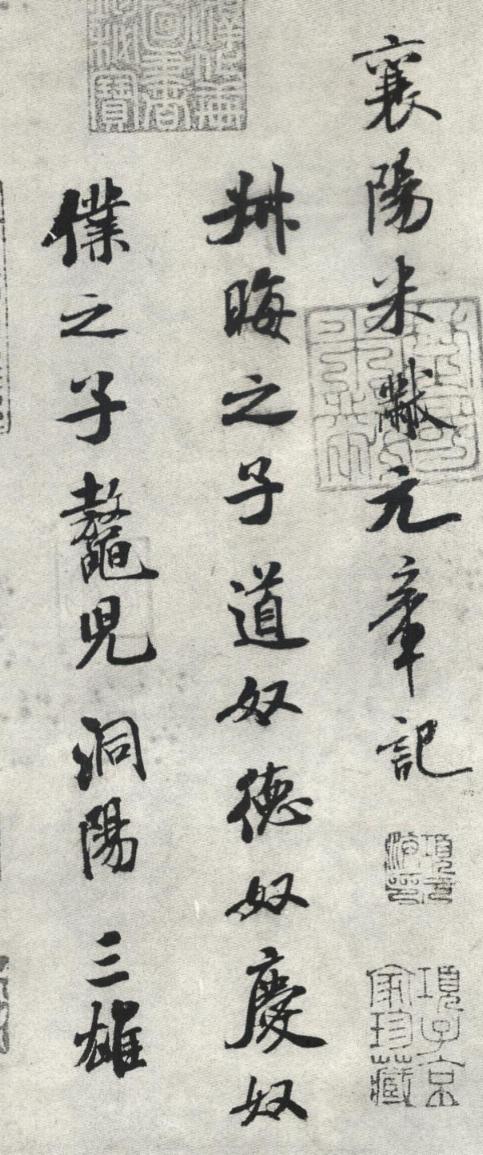 襄陽米黻元章記
項元汴印
項子京家珍藏
叔晦之子道奴德奴慶奴
僕之子鼇兒洞陽三雄